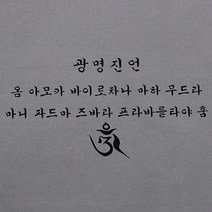 광명진언
옴 아모카 바이로차나 마하 무드라
마니 파드마 즈바라 프라바를타야 훔
ༀ